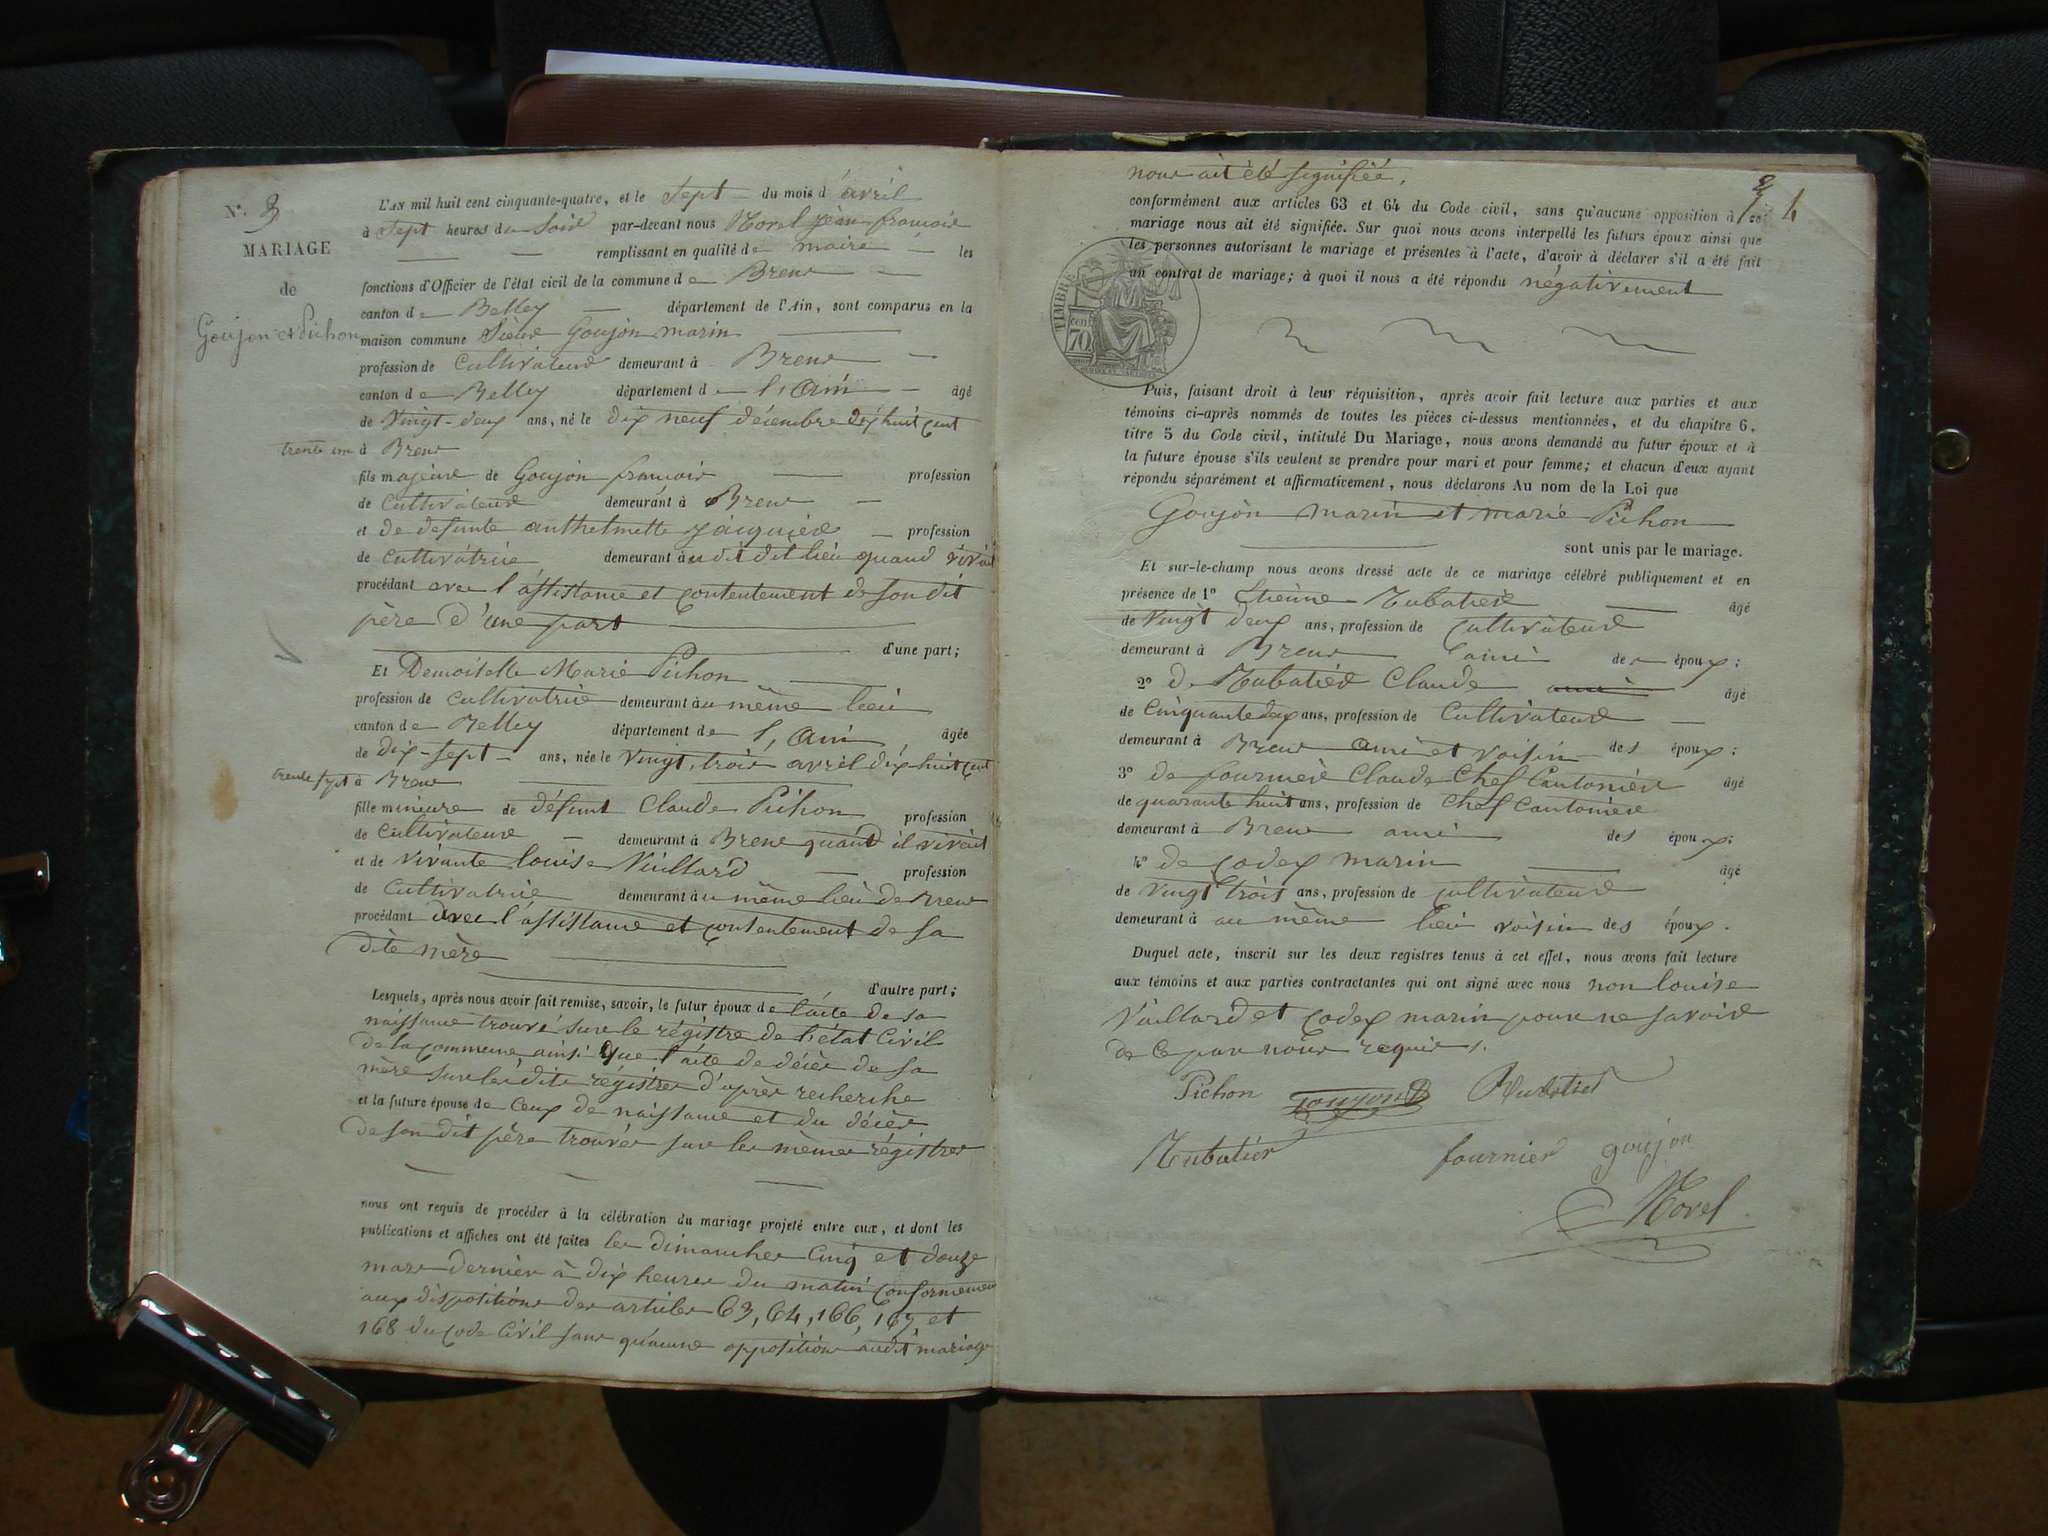 N.º 3
MARIAGE
de
Goujon et Pichon
L'AN mil huit cent cinquante-quatre, et le Sept du mois d'avril
à Sept heures du Soir par-devant nous Morel Jean françois
remplissant en qualité de maire les
fonctions d'Officier de l'état civil de la commune de Brens
canton de Belley département de l'Ain, sont comparus en la
maison commune Sieur Goujon marin
profession de Cultivateur demeurant à Brens
canton de Belley département de l'ain âgé
de Vingt-deux ans, né le dix neuf décembre dix huit cent
trente un à Brens
fils majeur de Goujon françois profession
de Cultivateur demeurant à Brens
et de defunte anthelmette Jacquier profession
de Cultivatrice demeurant au dit dit lieu quand vivait
procédant avec l'assistance et consentement de son dit
père d'une part
d'une part;
Et Demoiselle Marie Pichon
profession de cultivatrice demeurant au même lieu
canton de Belley département de l'Ain âgée
de dix-sept ans, née le vingt trois avril dix huit cent
trente sept à Brens
fille mineure de défunt Claude Pichon profession
de Cultivateur demeurant à Brens quand il vivait
et de vivante Louise Vuillard profession
de Cultivatrice demeurant au même lieu de Brens
procédant avec l'assistance et consentement de sa
dite mère
d'autre part;
Lesquels, après nous avoir fait remise, savoir, le futur époux de l'acte de sa
naissance trouvé sur le régistre de l'état Civil
de la commune, ainsi que l'acte de décès de sa
mère sur les dits régistres d'après recherche
et la future épouse de Ceux de naissance et du décès
de son dit père trouvés sur les mêmes régistres
nous ont requis de procéder à la célébration du mariage projeté entre eux, et dont les
publications et affiches ont été faites les dimanches Cinq et douze
mars dernier à dix heures du matin conformément
aux dispositions des articles 63, 64, 166, 167, et
168 du code Civil sans qu'aucune opposition audit mariage
nous ait été signifiée.
4
conformément aux articles 63 et 64 du Code civil, sans qu'aucune opposition à ce
mariage nous ait été signifiée. Sur quoi nous avons interpellé les futurs époux ainsi que
les personnes autorisant le mariage et présentes à l'acte, d'avoir à déclarer s'il a été fait
un contrat de mariage; à quoi il nous a été répondu négativement
TIMBRE
cent
70
Puis, faisant droit à leur réquisition, après avoir fait lecture aux parties et aux
témoins ci-après nommés de toutes les pièces ci-dessus mentionnées, et du chapitre 6,
titre 5 du Code civil, intitulé Du Mariage, nous avons demandé au futur époux et à
la future épouse s'ils veulent se prendre pour mari et pour femme; et chacun d'eux ayant
répondu séparément et affirmativement, nous déclarons Au nom de la Loi que
Goujon marin et marie Pichon
sont unis par le mariage.
Et sur-le-champ nous avons dressé acte de ce mariage célébré publiquement et en
présence de 1º Etienne Rubatier âgé
de Vingt deux ans, profession de Cultivateur
demeurant à Brens ami des époux;
2º de Rubatier Claude âgé
de Cinquante dix ans, profession de Cultivateur
demeurant à Brens ami et voisin des époux;
3º de fournier Claude Chef Cantonier âgé
de quarante huit ans, profession de chef Cantonier
demeurant à Brens ami des époux;
4º de Codex marin âgé
de vingt trois ans, profession de cultivateur
demeurant à au même lieu voisin des époux.
Duquel acte, inscrit sur les deux registres tenus à cet effet, nous avons fait lecture
aux témoins et aux parties contractantes qui ont signé avec nous non louise
Vuillard et Codex marin pour ne savoir
de ce par nous requis.
Pichon goujon Rubatier
Rubatier fournier goujon
Morel